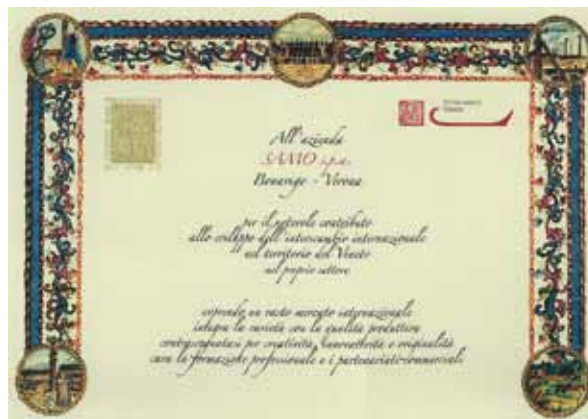 All'azienda
SAMO s.p.a.
Bonavigo - Verona
per il notevole contributo
allo sviluppo dell'intercambio internazionale
nel territorio del Veneto
nel proprio settore
coprendo un vasto mercato internazionale
integra la varietà con la qualità produttiva
per creatività, innovatività e originalità
cura la formazione professionale e i partenariati commerciali